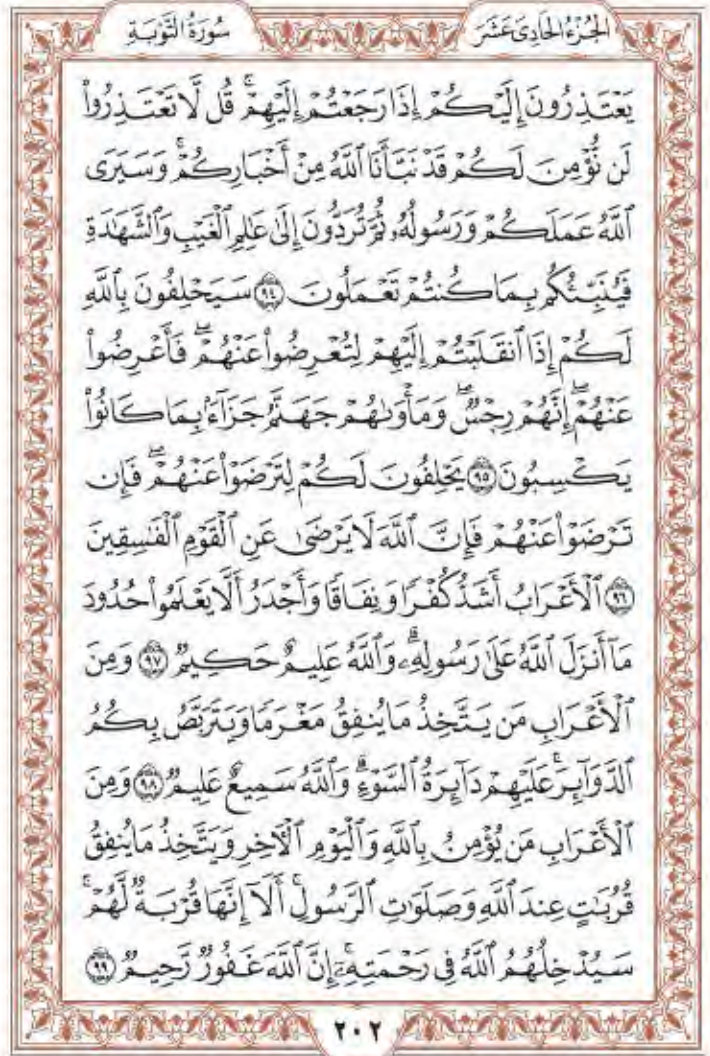 الجُزْءُ الحَادِى عَشَرَ سُورَةُ التَّوْبَةِ
يَعْتَذِرُونَ إِلَيْكُمْ إِذَا رَجَعْتُمْ إِلَيْهِمْۚ قُل لَّا تَعْتَذِرُوا۟
لَن نُّؤْمِنَ لَكُمْ قَدْ نَبَّأَنَا ٱللَّهُ مِنْ أَخْبَارِكُمْۚ وَسَيَرَى
ٱللَّهُ عَمَلَكُمْ وَرَسُولُهُۥ ثُمَّ تُرَدُّونَ إِلَىٰ عَٰلِمِ ٱلْغَيْبِ وَٱلشَّهَٰدَةِ
فَيُنَبِّئُكُم بِمَا كُنتُمْ تَعْمَلُونَ ٩٤ سَيَحْلِفُونَ بِٱللَّهِ
لَكُمْ إِذَا ٱنقَلَبْتُمْ إِلَيْهِمْ لِتُعْرِضُوا۟ عَنْهُمْۖ فَأَعْرِضُوا۟
عَنْهُمْۖ إِنَّهُمْ رِجْسٌۖ وَمَأْوَىٰهُمْ جَهَنَّمُ جَزَآءًۢ بِمَا كَانُوا۟
يَكْسِبُونَ ٩٥ يَحْلِفُونَ لَكُمْ لِتَرْضَوْا۟ عَنْهُمْۖ فَإِن
تَرْضَوْا۟ عَنْهُمْ فَإِنَّ ٱللَّهَ لَا يَرْضَىٰ عَنِ ٱلْقَوْمِ ٱلْفَٰسِقِينَ
٩٦ ٱلْأَعْرَابُ أَشَدُّ كُفْرًا وَنِفَاقًا وَأَجْدَرُ أَلَّا يَعْلَمُوا۟ حُدُودَ
مَآ أَنزَلَ ٱللَّهُ عَلَىٰ رَسُولِهِۦۗ وَٱللَّهُ عَلِيمٌ حَكِيمٌ ٩٧ وَمِنَ
ٱلْأَعْرَابِ مَن يَتَّخِذُ مَا يُنفِقُ مَغْرَمًا وَيَتَرَبَّصُ بِكُمُ
ٱلدَّوَآئِرَۚ عَلَيْهِمْ دَآئِرَةُ ٱلسَّوْءِۗ وَٱللَّهُ سَمِيعٌ عَلِيمٌ ٩٨ وَمِنَ
ٱلْأَعْرَابِ مَن يُؤْمِنُ بِٱللَّهِ وَٱلْيَوْمِ ٱلْـَٔاخِرِ وَيَتَّخِذُ مَا يُنفِقُ
قُرُبَٰتٍ عِندَ ٱللَّهِ وَصَلَوَٰتِ ٱلرَّسُولِۚ أَلَآ إِنَّهَا قُرْبَةٌ لَّهُمْۚ
سَيُدْخِلُهُمُ ٱللَّهُ فِى رَحْمَتِهِۦٓۚ إِنَّ ٱللَّهَ غَفُورٌ رَّحِيمٌ ٩٩
٢٠٢